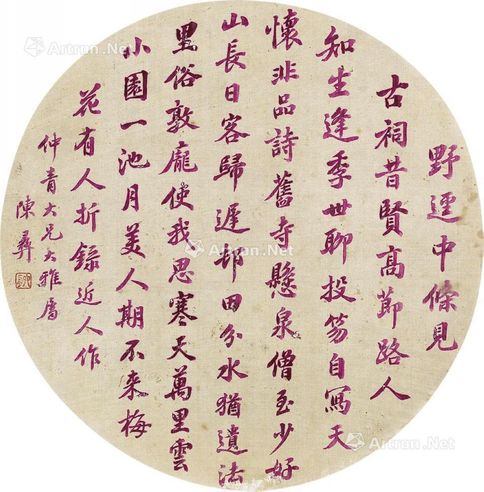 野逕中條見
古祠昔賢高節路人
知生逢季世聊投笏自寫天
懷非品詩舊寺懸泉僧至少好
山長日客歸遲邨田分水猶遺法
里俗敦龐使我思寒天萬里雲
小園一池月美人期不來梅
花有人折錄近人作
仲青大兄大雅屬
陳彝
Artron.Net